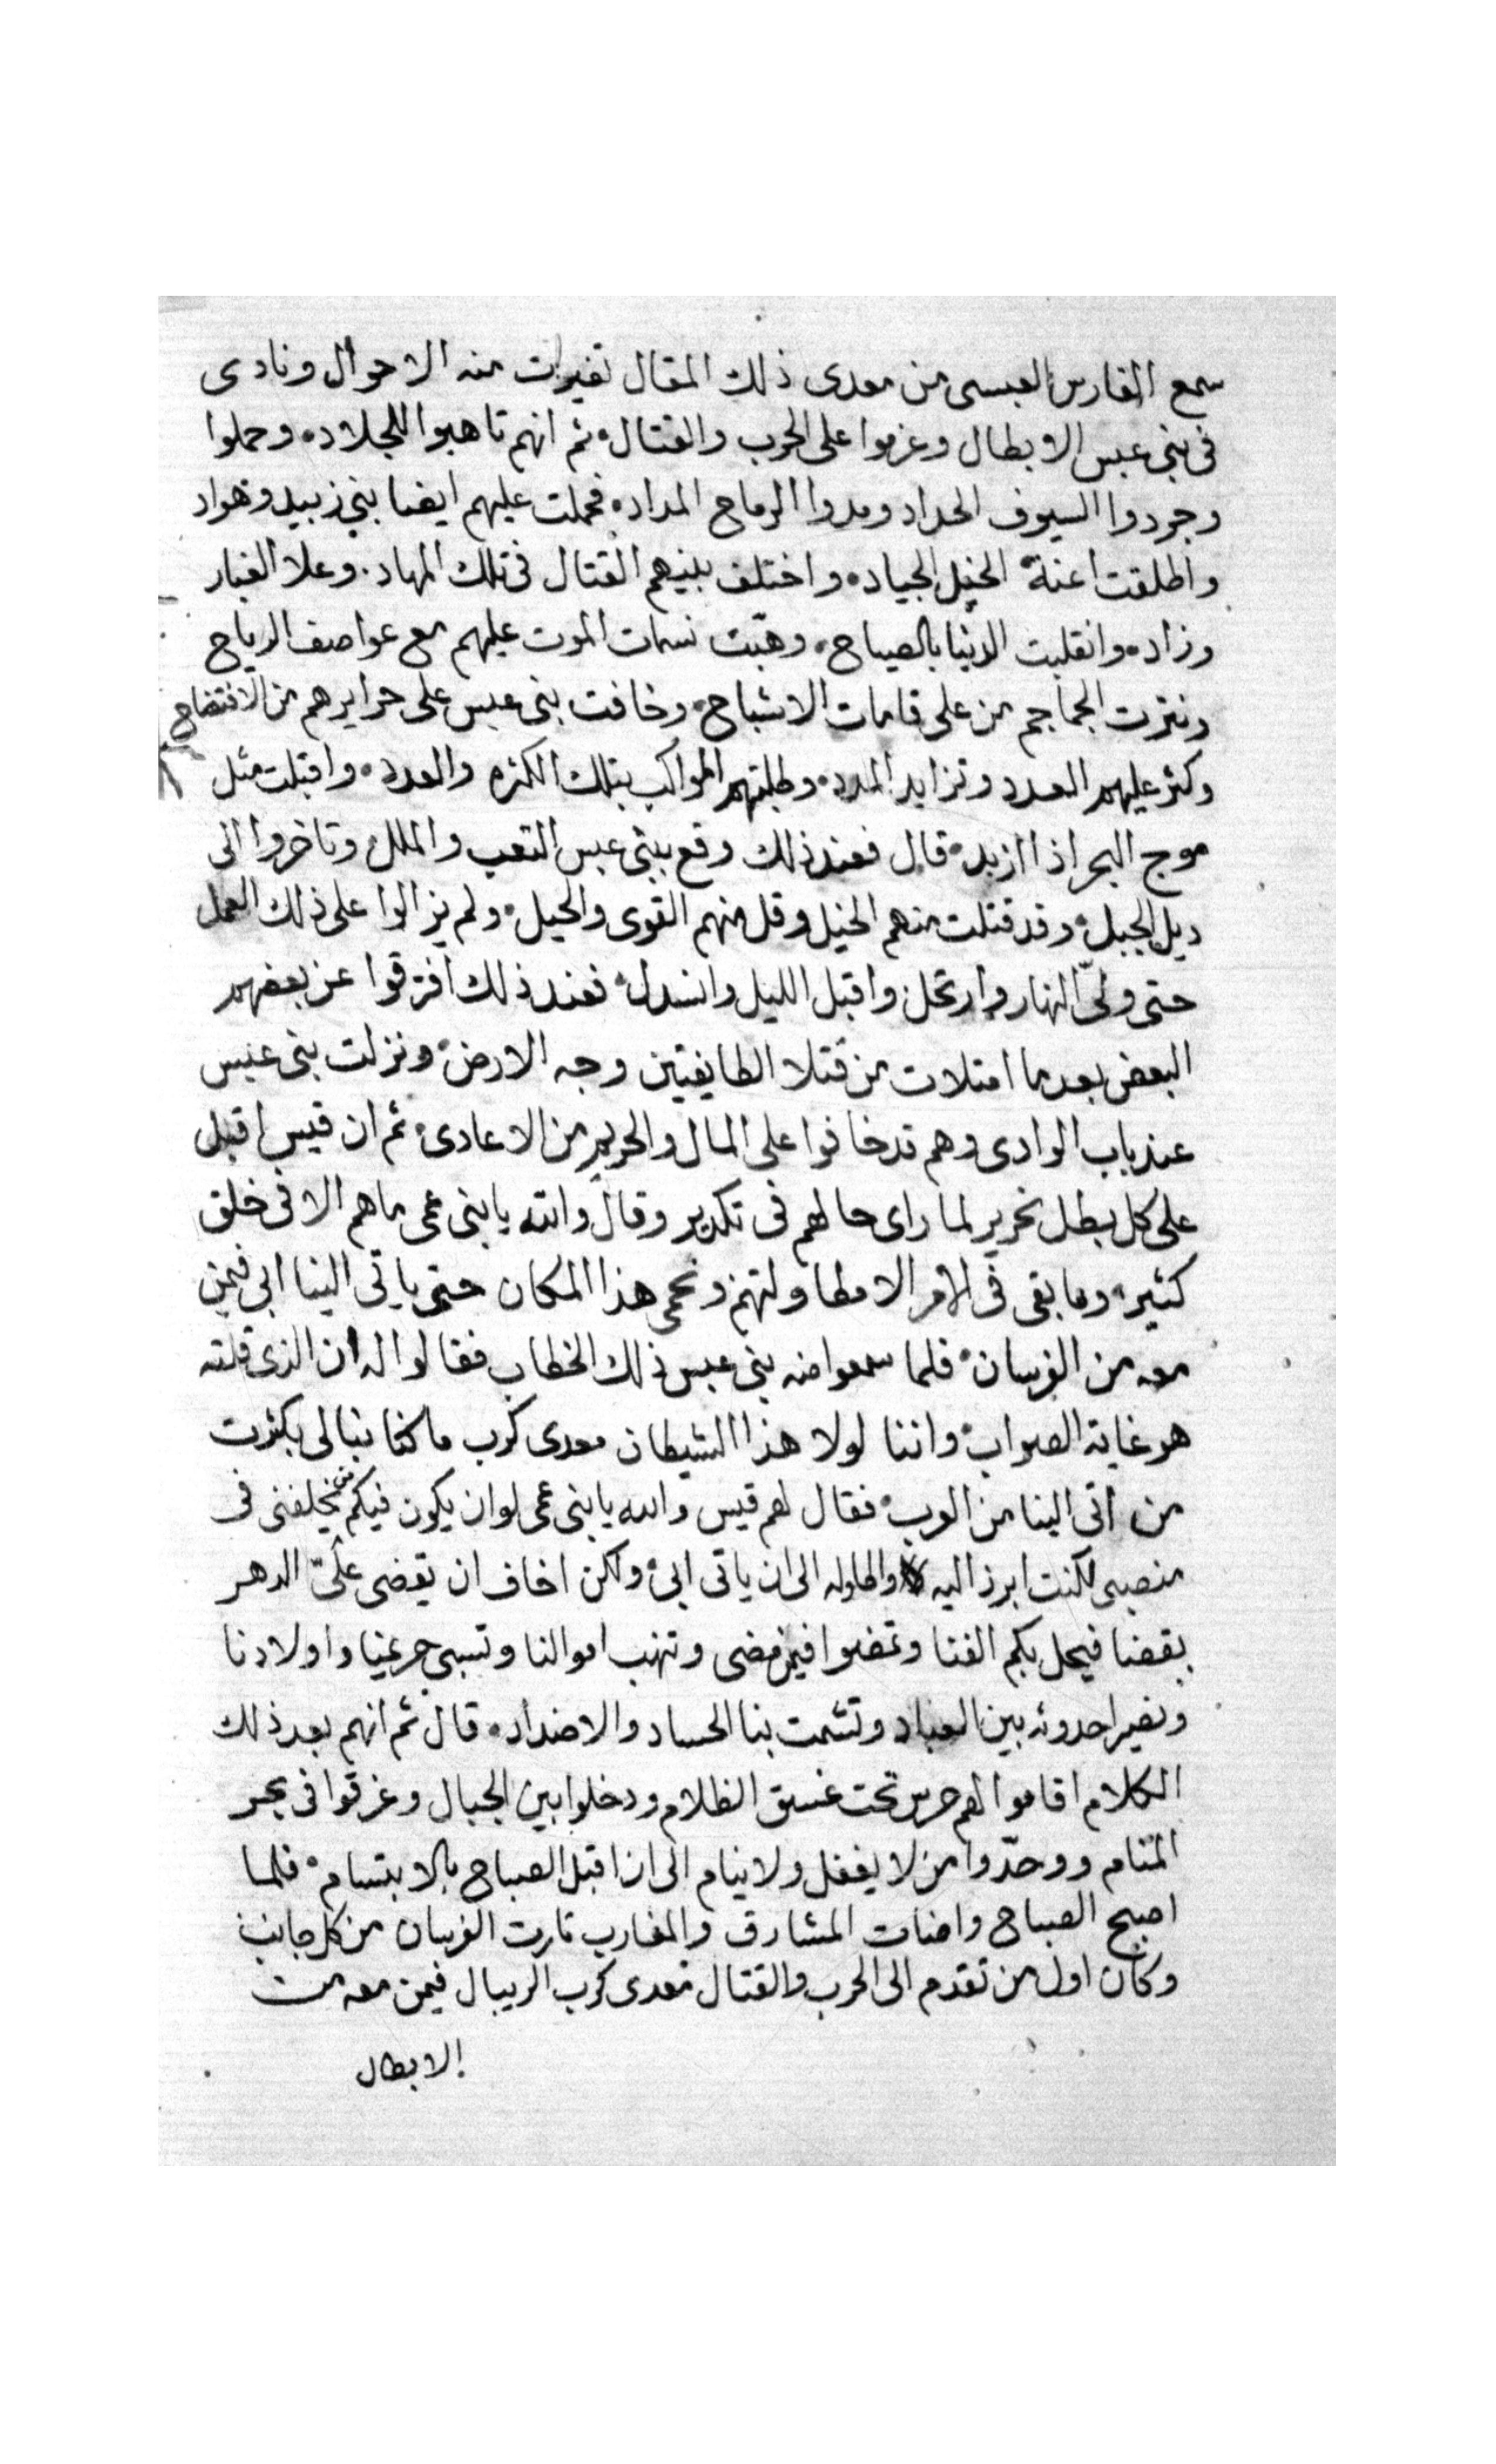 سمع الفارس العبسى من معدى ذلك المقال تغيرات منه الاحوال ونادى
فى بنى عبس الابطال وعزموا على الحرب والقتال ثم انهم تاهبوا للجلاد وحملوا
وجردوا السيوف الحداد ومدوا الرماح المداد فحملت عليهم ايضا بنى زبيد وهواد
واطلقت اعنة الخيل الجياد واختلف بينهم القتال فى تلك المهاد وعلا الغبار
وزاد وانقلبت الدنيا بالصياح وهبّت نسمات الموت عليهم مع عواصف الرياح
ونثرت الجماجم من على قامات الاشباح وخافت بنى عبس على حرايرهم من الافتضاح
وكثر عليهم العدد وتزايد المدد وطلبتهم المواكب بتلك الكثره والعدد واقبلت مثل
موج البحر اذا ازبد قال فعند ذلك وقع ببنى عبس التعب والملل وتاخروا الى
ديل الجبل وقد قتلت منهم الخيل وقل منهم القوى والحيل ولم يزالوا على ذلك العمل
حتى ولّى النهار وارتحل واقبل الليل وانسدل فعند ذلك افترقوا عن بعضهم
البعض بعدما امتلات من قتلا الطايفتين وجه الارض ونزلت بنى عبس
عند باب الوادى وهم قد خافوا على المال والحريم من الاعادى ثم ان قيس اقبل
على كل بطل نحرير لما راى حالهم فى تكدير وقال والله يا بنى عمى ما هم الا فى خلق
كثير وما بقى فى الامر الا مطاولتهم ونحمى هذا المكان حتى ياتى الينا ابى فيمن
معه من الفرسان فلما سمعوا منه بنى عبس ذلك الخطاب فقالوا له ان الذى قلته
هو غاية الصواب واننا لولا هذا الشيطان معدى كرب ما كنا نبالى بكثرت
من اتى الينا من العرب فقال لهم قيس والله يا بنى عمى لو ان يكون فيكم من يخلفنى فى
منصبى لكنت ابرز اليه واطاوله الى ان ياتى ابى ولكن اخاف ان يقضى علىّ الدهر
بقضا فيحل بكم الفنا وتمضوا فيمن مضى وتنهب اموالنا وتسبى حريمنا واولادنا
ونصير احدوثه بين العباد وتشمت بنا الحساد والاضداد قال ثم انهم بعد ذلك
الكلام اقاموا لهم حرس تحت غسق الظلام ودخلوا بين الجبال وغرقوا فى بحر
المنام ووحدّوا من لا يغفل ولا ينام الى ان اقبل الصباح بالابتسام فلما
اصبح الصباح واضات المشارق والمغارب ثارت الفرسان من كل جانب
وكان اول من تقدم الى الحرب والقتال معدى كرب الريبال فيمن معه من
الابطال